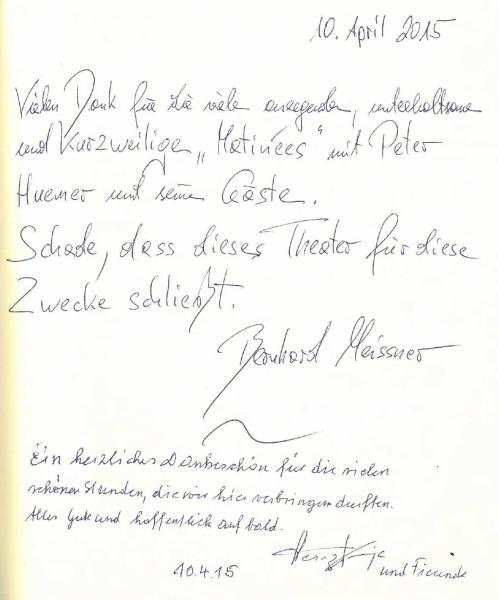 10. April 2015
Vielen Dank für die viele anregenden, unterhaltsame
und Kurzweilige „Matinées“ mit Peter
Huemer und seine Gäste.
Schade, dass dieses Theater für diese
Zwecke schließt.
Bernhard Meissner
Ein herzliches Dankeschön für die vielen
schönen Stunden, die wir hier verbringen durften.
Alles Gute und hoffentlich auf bald.
und Freunde
10.4.15